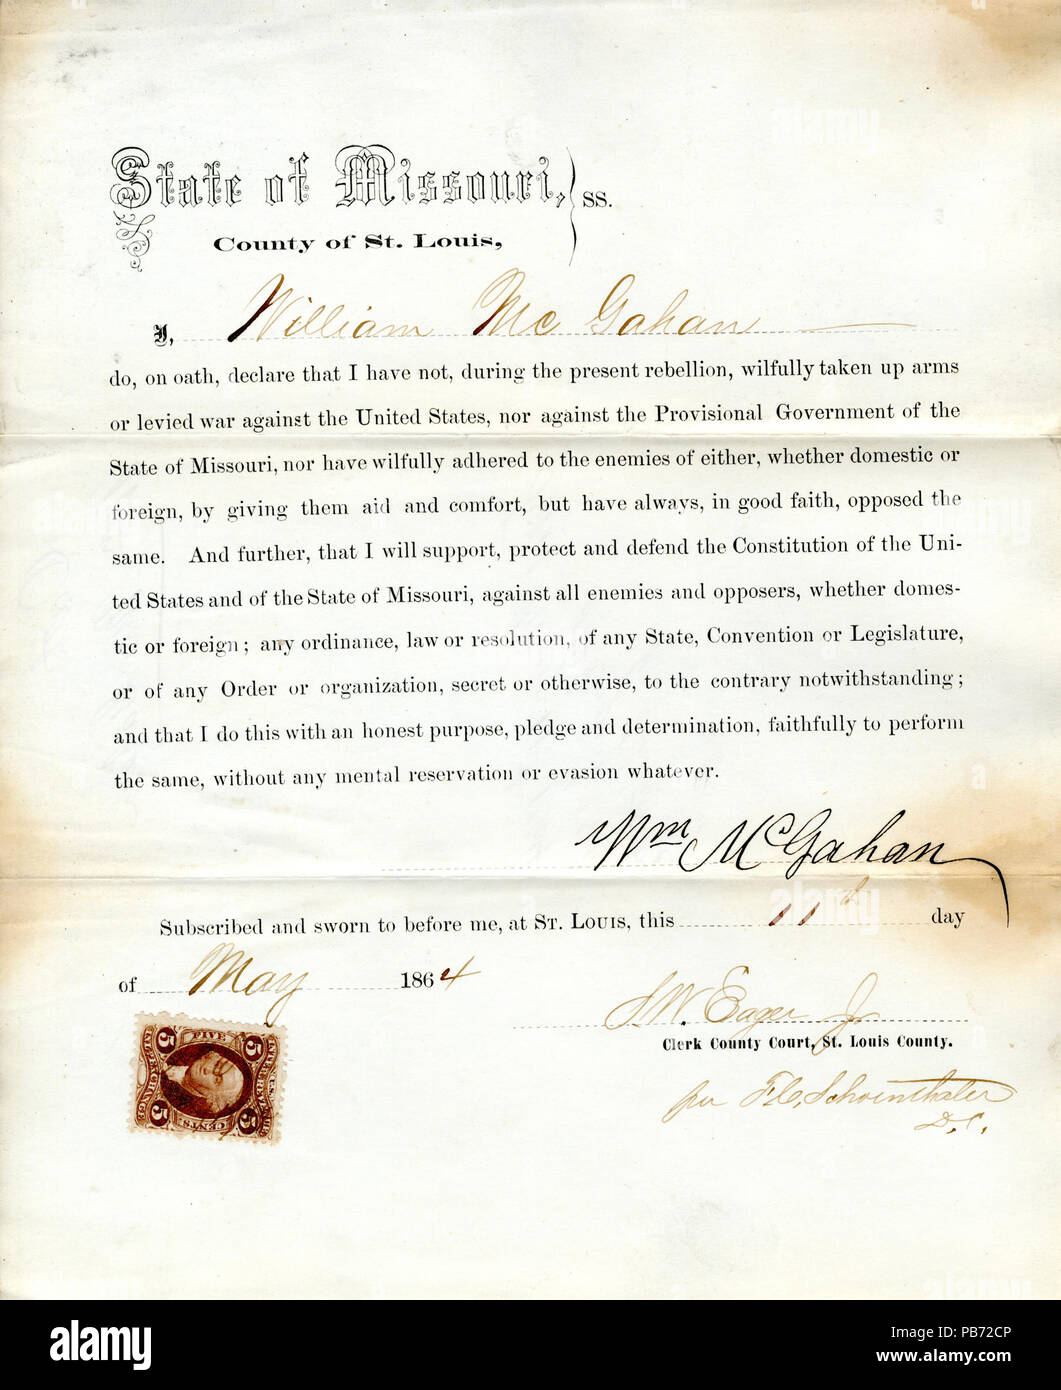 State of Missouri, } ss.
County of St. Louis,
I, William Mc Gahan
do, on oath, declare that I have not, during the present rebellion, wilfully taken up arms
or levied war against the United States, nor against the Provisional Government of the
State of Missouri, nor have wilfully adhered to the enemies of either, whether domestic or
foreign, by giving them aid and comfort, but have always, in good faith, opposed the
same. And further, that I will support, protect and defend the Constitution of the Uni-
ted States and of the State of Missouri, against all enemies and opposers, whether domes-
tic or foreign; any ordinance, law or resolution, of any State, Convention or Legislature,
or of any Order or organization, secret or otherwise, to the contrary notwithstanding;
and that I do this with an honest purpose, pledge and determination, faithfully to perform
the same, without any mental reservation or evasion whatever.
Wm McGahan
Subscribed and sworn to before me, at St. Louis, this 11th day
of May 1864
S.W. Eager Jr
Clerk County Court, St. Louis County.
per F.C. Schoenthaler
D.C.
5 FIVE 5
INTER. REVENUE
INLD EXCHANGE
5 CENTS 5
alamy
Image ID: PB72CP
www.alamy.com